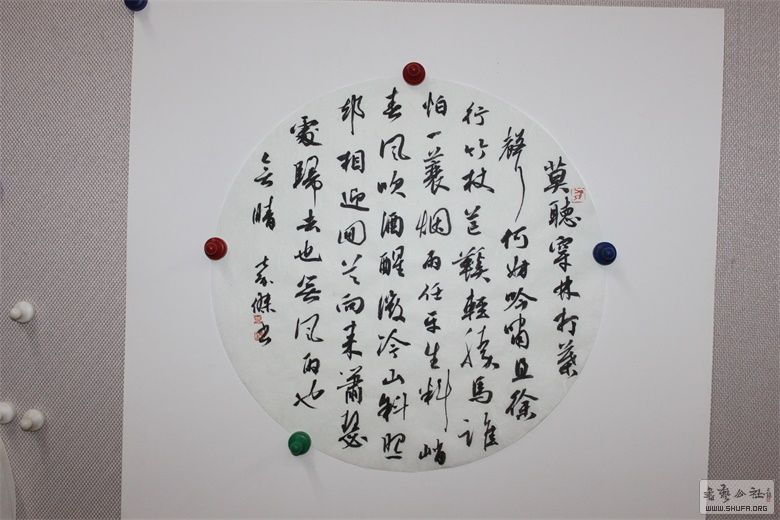 莫聽穿林打葉
聲何妨吟嘯且徐
行竹杖芒鞵輕勝馬誰
怕一蓑烟雨任平生料峭
春风吹酒醒微冷山斜照
却相迎回首向来蕭瑟
處歸去也無风雨也
無晴 傑书
書藝公社
WWW.SHUFA.ORG